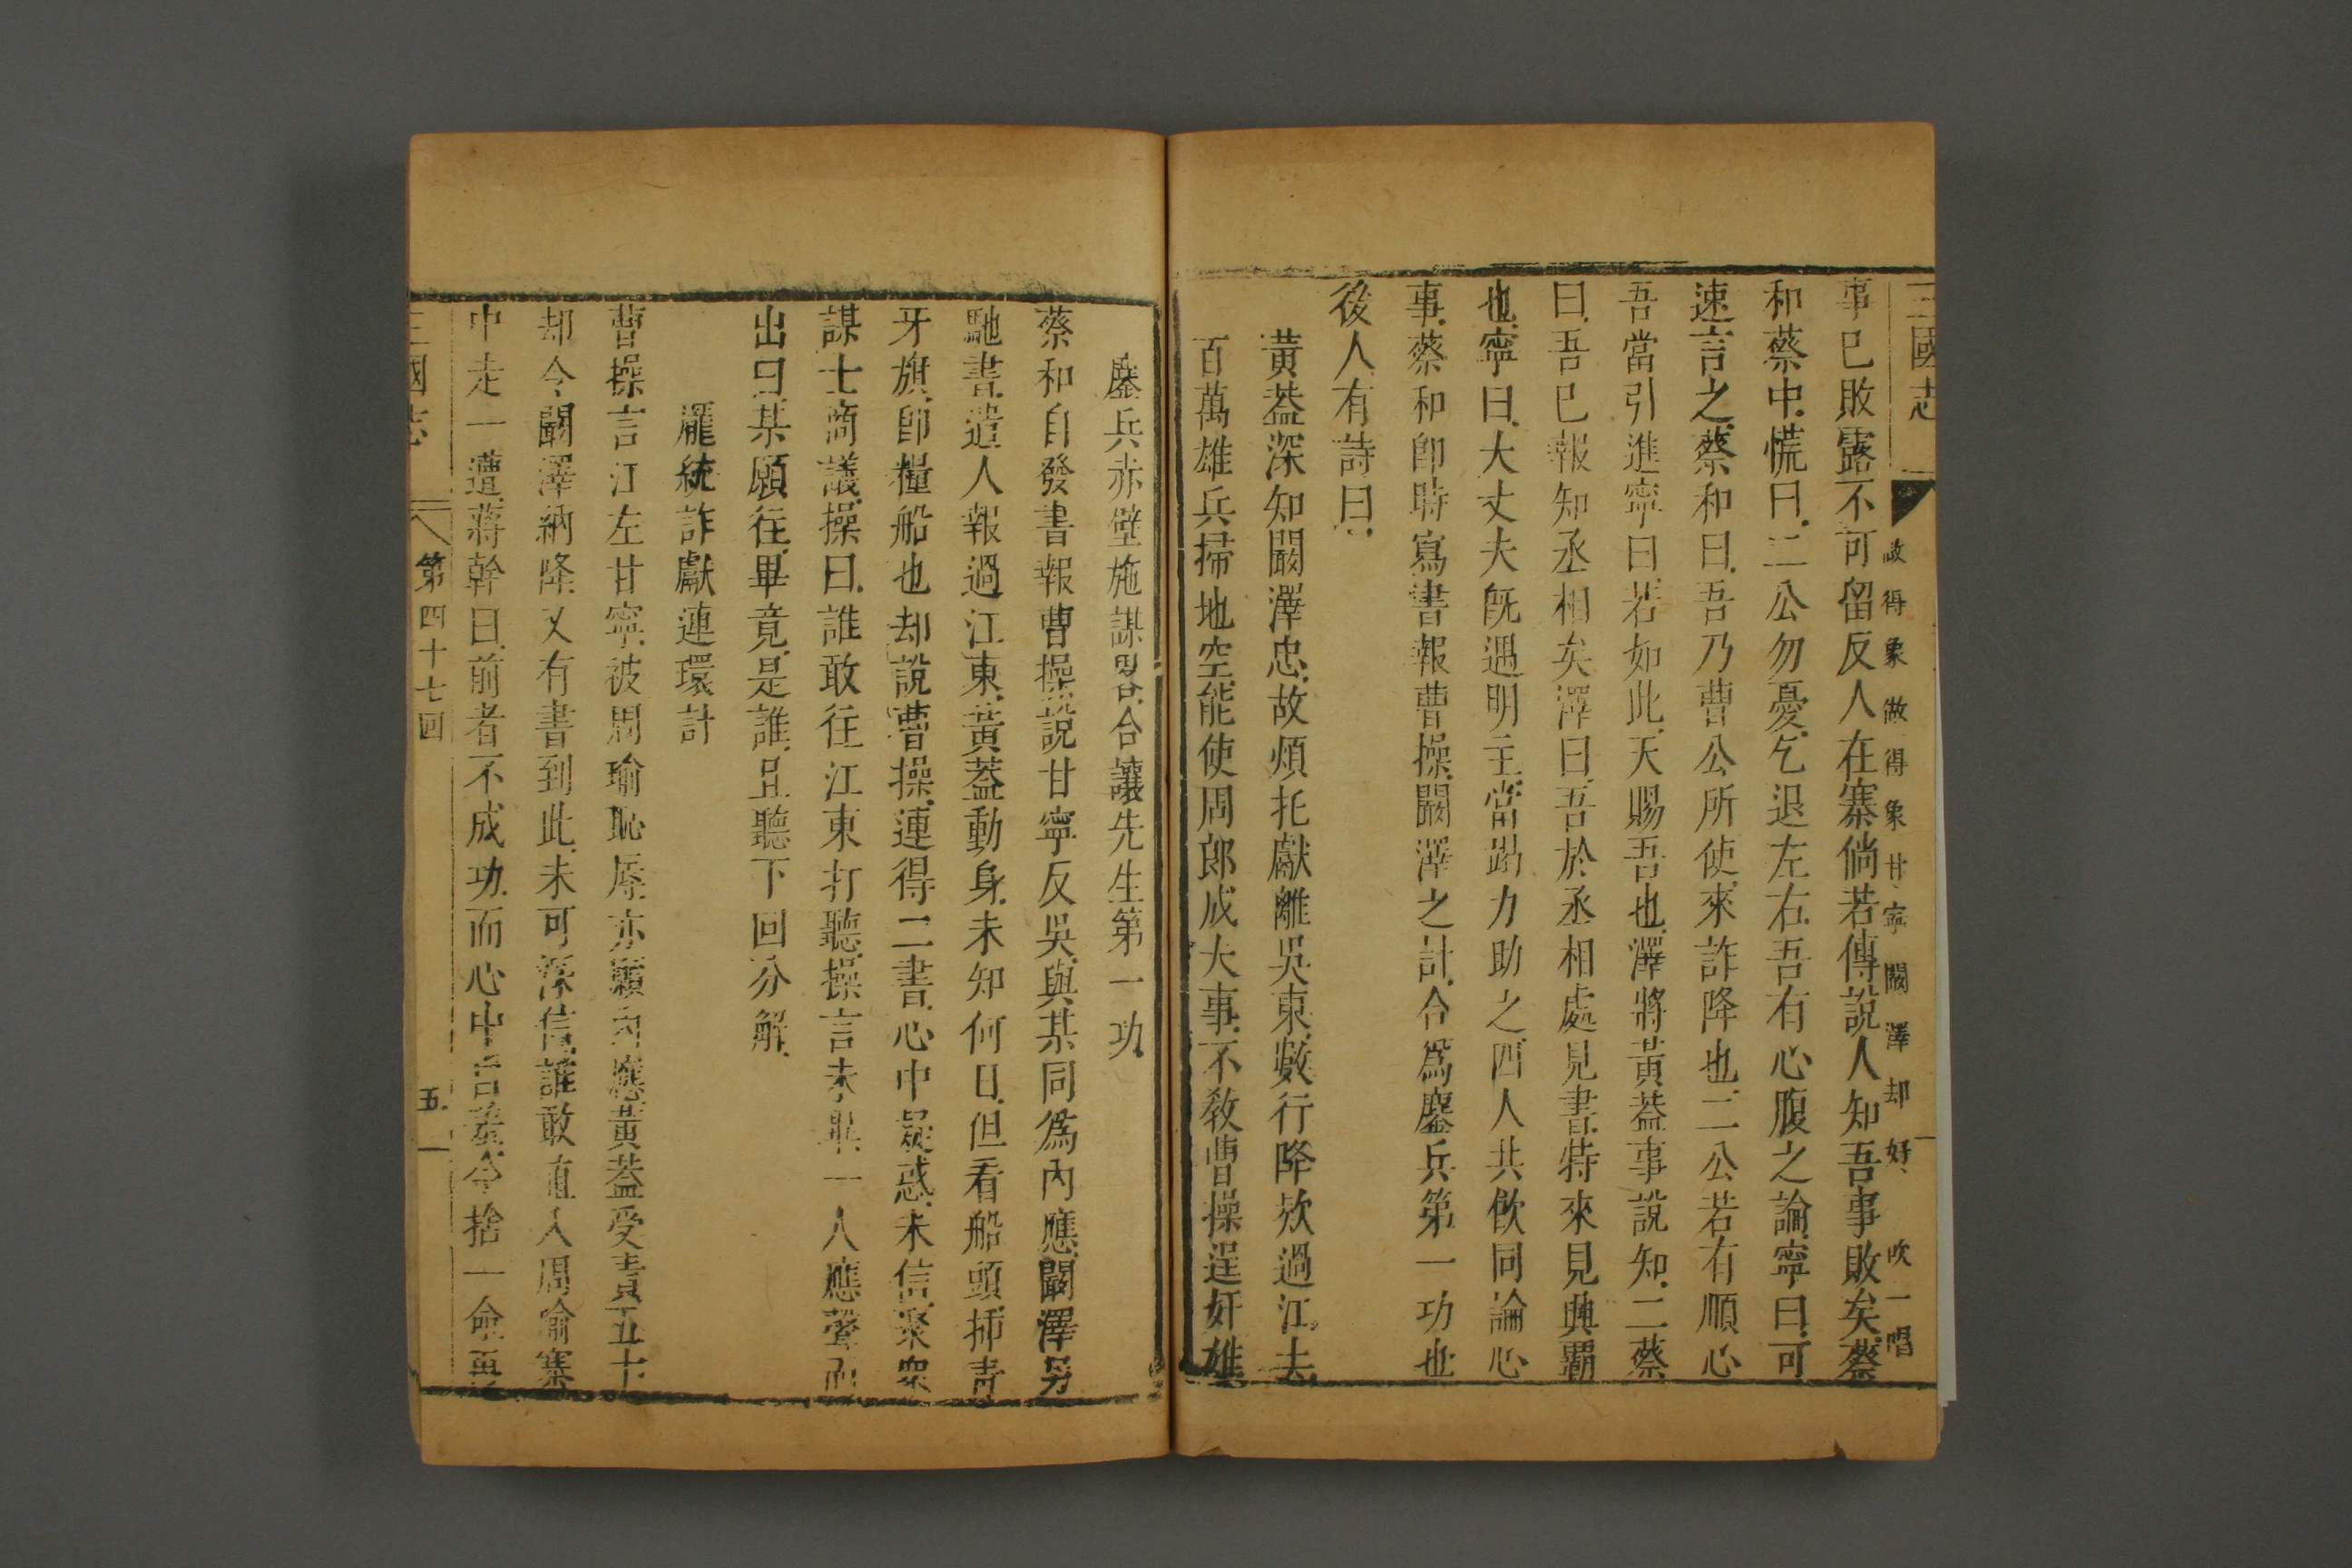 三國志
故得象做得象甘寧闞澤却好吹一唱
事已敗露不可留反人在寨倘若傳說人知吾事敗矣蔡
和蔡中慌曰二公勿憂乞退左右吾有心腹之論寧曰可
速言之蔡和曰吾乃曹公所使來詐降也二公若有順心
吾當引進寧曰若如此天賜吾也澤將黃蓋事說知二蔡
曰吾已報知丞相矣澤曰吾於丞相處見書特來見興霸
也寧曰大丈夫既遇明主當竭力助之四人共飲同論心
事蔡和即時寫書報曹操闞澤之計合爲鏖兵第一功也
後人有詩曰
黃蓋深知闞澤忠故煩托獻離吳東數行降欵過江去
百萬雄兵掃地空能使周郎成大事不教曹操逞奸雄
鏖兵赤壁施謀畧合讓先生第一功
蔡和自發書報曹操說甘寧反吳與某同爲內應闞澤另
馳書遣人報過江東黃蓋動身未知何日但看船頭揷青
牙旗即糧船也却說曹操連得二書心中疑惑未信聚衆
謀士商議操曰誰敢往江東打聽操言未畢一人應聲而
出曰某願往畢竟是誰且聽下回分解
龐統詐獻連環計
曹操言江左甘寧被周瑜恥辱亦願內應黃蓋受責五十
却令闞澤納降又有書到此未可深信誰敢直入周瑜寨
中走一遭蔣幹曰前者不成功而心中含羞今捨一命再
三國志 第四十七回 五